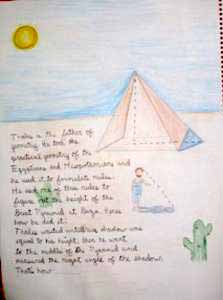 Thales is the father of
geometry. He took the
practical geometry of the
Egyptians and Mesopotamians and
he used it to formulate rules.
He used one of these rules to
figure out the height of the
Great Pyramid at Giza. Heres
how he did it.
Thales waited until his shadow was
equal to his height, then he went
to the middle of the Pyramid and
measured the right angle of the shadow.
Thats how